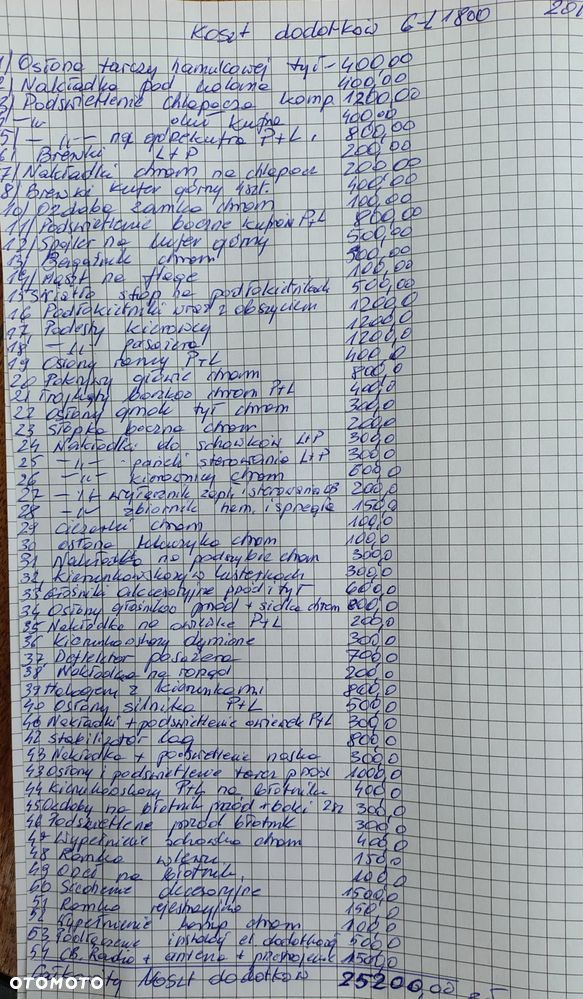 Koszt dodatków GL1800 201
1) Osłona tarczy hamulcowej tył - 400,00
2) Nakładka pod kolana 400,00
3) Podświetlenie chłapacza komp. 1200,00
4) -"- kufra 400,00
5) -"- na kufra P+L. 800,00
6) Brewki L+P 200,00
7) Nakładki chrom na chłapacz 200,00
8) Brewki kufer górny 4szt. 400,00
10) Ozdoba zamka chrom 100,00
11) Podświetlenie boczne kufrów P+L 800,00
12) Spojler na kufer górny 500,00
13) Bagażnik chrom 500,00
14) Maszt na flagę 100,00
15 Światło stop na podłokietnikach 500,00
16 Podłokietniki wraz z obszyciem 1200,0
17 Podesty kierowcy 1200,0
18 -"- pasażera 1200,0
19 Osłony ramy P+L 400,0
20 Pokrywy głowic chrom 800,0
21 Trójkąty boczków chrom P+L 400,0
22 Osłony gmok tył chrom 300,0
23 Stopka boczna chrom 200,0
24 Nakładki do schowków L+P 300,0
25 -"- paneli sterowania L+P 300,0
26 -"- kierownicy chrom 600,0
27 -"- wyłącznik zapł. i sterowania 200,0
28 -"- zbiornik ham. i sprzęgła 150,0
29 Ciężarki chrom 100,0
30 osłona tłuczyka chrom 100,0
31 Nakładka na podszybie chrom 300,0
32 Kierunkowskazy w lusterkach 300,0
33 Głośniki akcesoryjne przód i tył 600,0
34 Osłony głośników przód + siatka chrom 200,0
35 Nakładka na owiewkę P+L 200,0
36 Kierunkowskazy dymione 300,0
37 Deflektor pasażera 700,0
38 Nakładka na rozrząd 200,0
39 Halogeny z kierunkami 800,0
40 Osłony silnika P+L 500,0
40 Nakładki + podświetlenie owiewek P+L 300,0
42 Stabilizator lag 800,0
43 Nakładka + podświetlenie noska 300,0
43 Osłony i podświetlenie tarcz przód 1000,0
44 Kierunkowskazy P+L na błotniku 400,0
45 Ozdoby na błotnik przód + boki 300,0
46 Podświetlenie przód błotnik 300,0
47 Wypełnienie schowka chrom 400,0
48 Ramka wlewu 150,0
49 Orzeł na błotnik. 100,0
50 Siedzenie akcesoryjne 1500,0
51 Ramka rejestracyjna 150,0
52 Wypełnienie chrom 100,0
53 Podłączenie instalacji el. dodatkowej 500,0
54 CB. Radio + antena + 1500,0
Całkowity koszt dodatków 25200,00
OTOMOTO